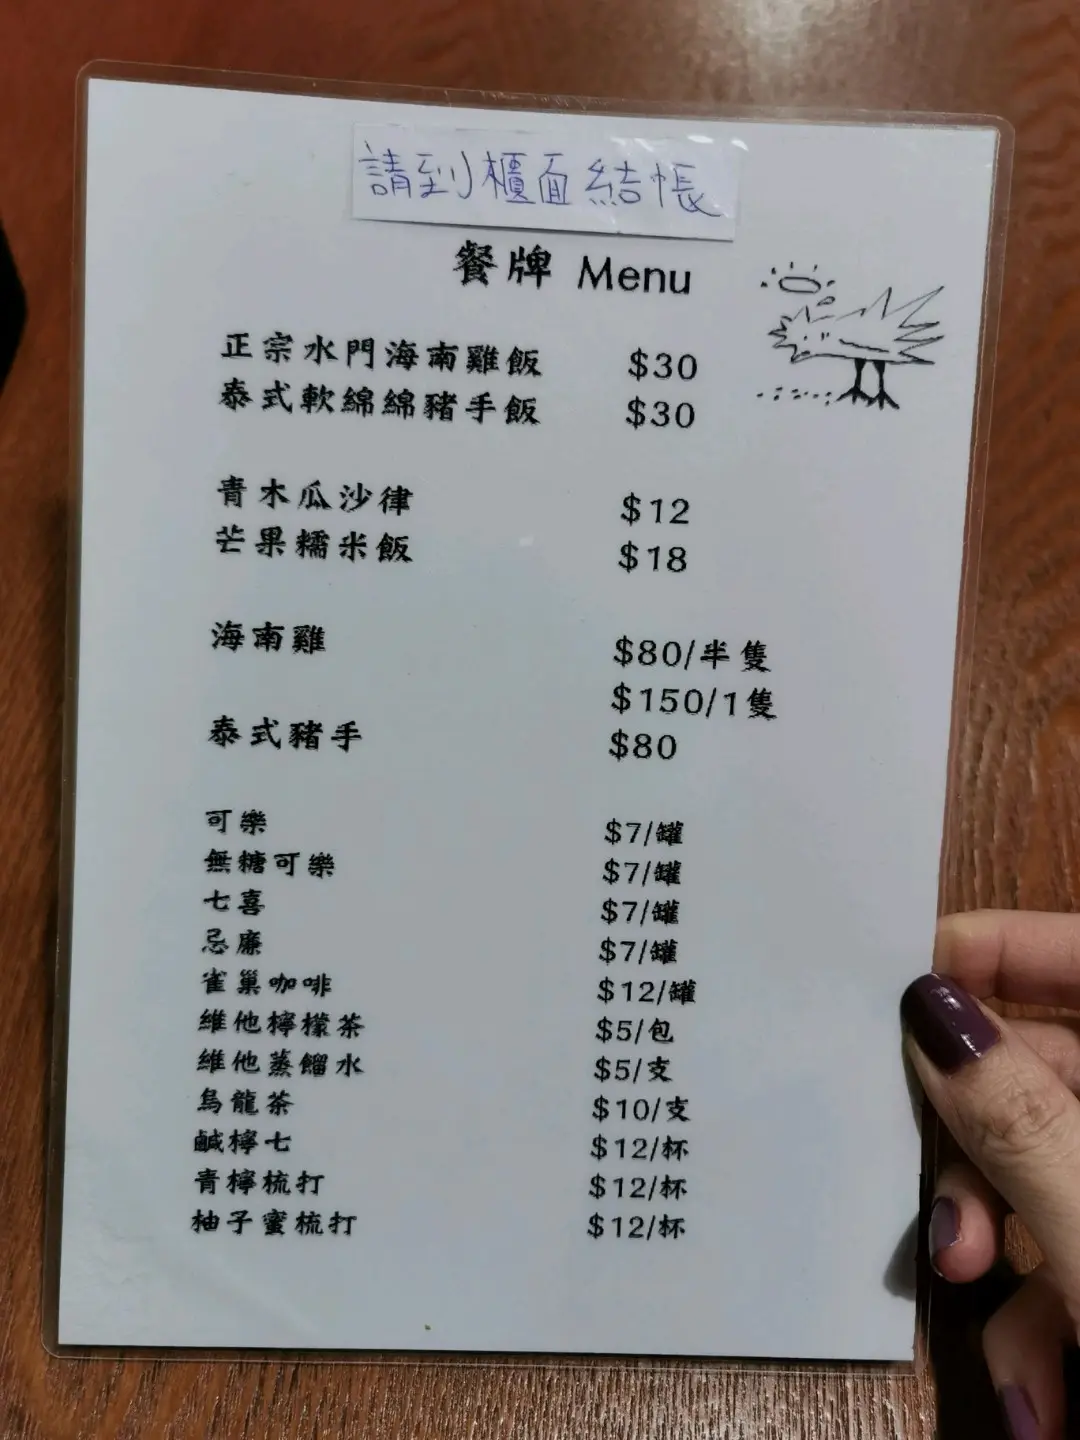 請到櫃面結帳
餐牌 Menu
正宗水門海南雞飯 $30
泰式軟綿綿豬手飯 $30
青木瓜沙律 $12
芒果糯米飯 $18
海南雞 $80/半隻
$150/1隻
泰式豬手 $80
可樂 $7/罐
無糖可樂 $7/罐
七喜 $7/罐
忌廉 $7/罐
雀巢咖啡 $12/罐
維他檸檬茶 $5/包
維他蒸餾水 $5/支
烏龍茶 $10/支
鹹檸七 $12/杯
青檸梳打 $12/杯
柚子蜜梳打 $12/杯